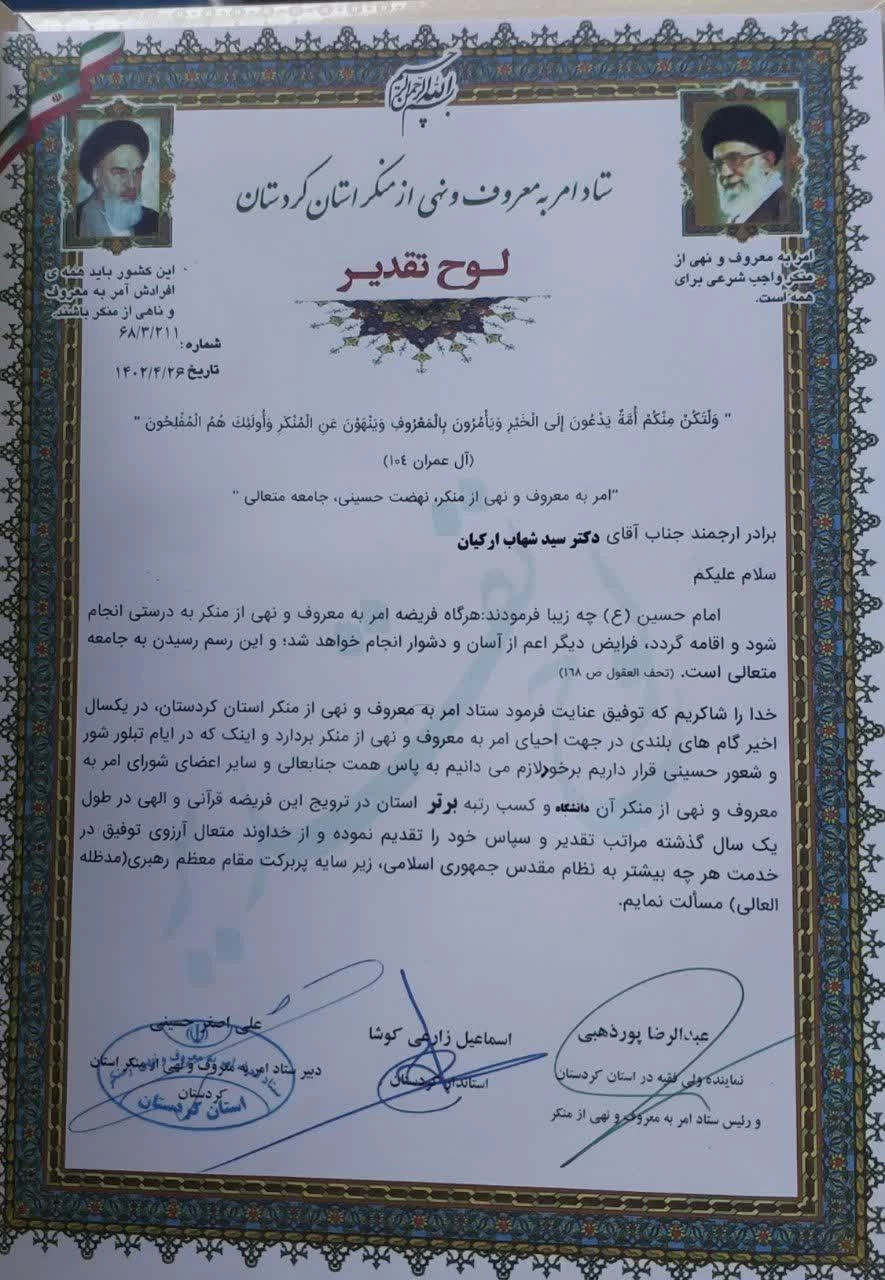 بسم الله الرحمن الرحیم
ستاد امر به معروف و نهی از منکر استان کردستان
لوح تقدیر
امر به معروف و نهی از
منکر واجب شرعی برای
همه است.
این کشور باید همه ی
افرادش آمر به معروف
و ناهی از منکر باشند.
شماره: ۶۸/۳/۲۱۱
تاریخ ۱۴۰۲/۴/۲۶
" وَلْتَكُنْ مِنْكُمْ أُمَّةٌ يَدْعُونَ إِلَى الْخَيْرِ وَيَأْمُرُونَ بِالْمَعْرُوفِ وَيَنْهَوْنَ عَنِ الْمُنْكَرِ وَأُولَئِكَ هُمُ الْمُفْلِحُونَ "
(آل عمران ١٠٤)
"امر به معروف و نهی از منکر، نهضت حسینی، جامعه متعالی "
برادر ارجمند جناب آقای دکتر سید شهاب ارکیان
سلام علیکم
امام حسین (ع) چه زیبا فرمودند:هرگاه فریضه امر به معروف و نهی از منکر به درستی انجام
شود و اقامه گردد، فرایض دیگر اعم از آسان و دشوار انجام خواهد شد؛ و این رسم رسیدن به جامعه
متعالی است. (تحف العقول ص ۱۶۸)
خدا را شاکریم که توفیق عنایت فرمود ستاد امر به معروف و نهی از منکر استان کردستان، در یکسال
اخیر گام های بلندی در جهت احیای امر به معروف و نهی از منکر بردارد و اینک که در ایام تبلور شور
و شعور حسینی قرار داریم برخورلازم می دانیم به پاس همت جنابعالی و سایر اعضای شورای امر به
معروف و نهی از منکر آن دانشگاه و کسب رتبه برتر استان در ترویج این فریضه قرآنی و الهی در طول
یک سال گذشته مراتب تقدیر و سپاس خود را تقدیم نموده و از خداوند متعال آرزوی توفیق در
خدمت هر چه بیشتر به نظام مقدس جمهوری اسلامی، زیر سایه پربرکت مقام معظم رهبری(مدظله
العالی) مسألت نمایم.
عبدالرضا پورذهبی
نماینده ولی فقیه در استان کردستان
و رئیس ستاد امر به معروف و نهی از منکر
اسماعیل زارعی کوشا
استاندار کردستان
علی اصغر حسینی
دبیر ستاد امر به معروف و نهی از منکر استان
کردستان
استان کردستان